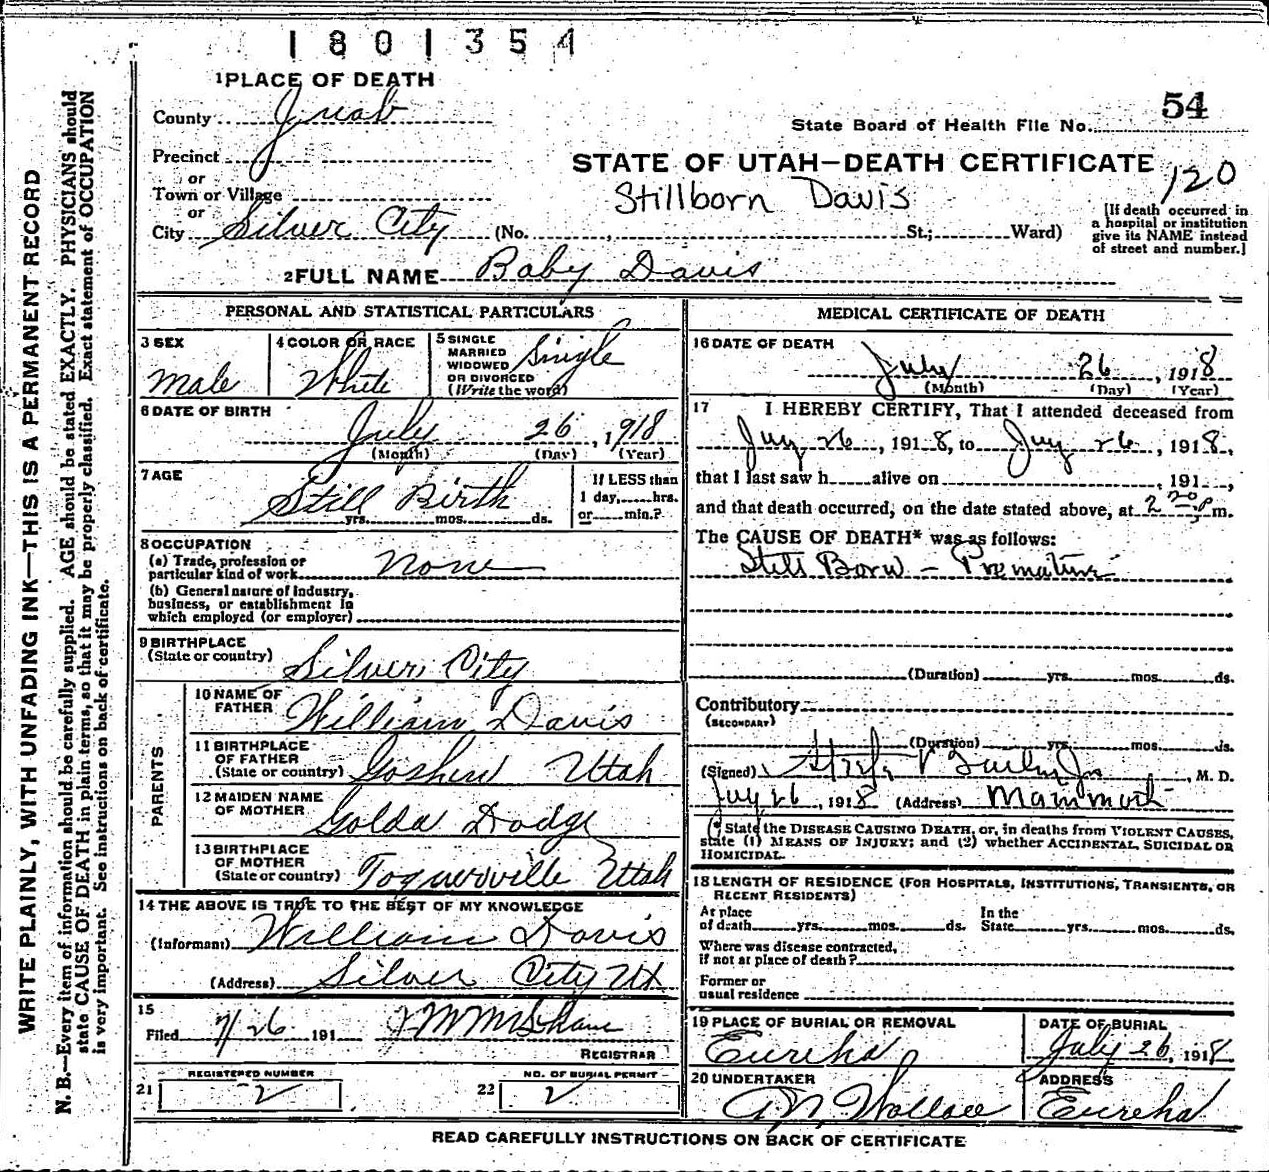 1801354
1 PLACE OF DEATH
54
County Juab
State Board of Health File No.
Precinct
STATE OF UTAH—DEATH CERTIFICATE
120
or
Town or Village
Stillborn Davis
or
City Silver City (No. , St.; Ward)
[If death occurred in
a hospital or institution
give its NAME instead
of street and number.]
2 FULL NAME Baby Davis
PERSONAL AND STATISTICAL PARTICULARS
3 SEX
Male
4 COLOR OR RACE
White
5 SINGLE
MARRIED
WIDOWED
OR DIVORCED
(Write the word)
Single
6 DATE OF BIRTH
July 26, 1918
(Month) (Day) (Year)
7 AGE
Still Birth
yrs. mos. ds.
If LESS than
1 day, hrs.
or min.?
8 OCCUPATION
(a) Trade, profession or
particular kind of work None
(b) General nature of Industry,
business, or establishment in
which employed (or employer)
9 BIRTHPLACE
(State or country) Silver City
PARENTS
10 NAME OF
FATHER William Davis
11 BIRTHPLACE
OF FATHER
(State or country) Goshen Utah
12 MAIDEN NAME
OF MOTHER Golda Dodge
13 BIRTHPLACE
OF MOTHER
(State or country) Toquerville Utah
14 THE ABOVE IS TRUE TO THE BEST OF MY KNOWLEDGE
(Informant) William Davis
(Address) Silver City Ut
15
Filed 7/26 191
REGISTRAR
REGISTERED NUMBER
21 2
NO. OF BURIAL PERMIT
22 2
MEDICAL CERTIFICATE OF DEATH
16 DATE OF DEATH
July 26, 1918
(Month) (Day) (Year)
17 I HEREBY CERTIFY, That I attended deceased from
July 26, 1918, to July 26, 1918,
that I last saw h alive on , 191 ,
and that death occurred, on the date stated above, at 2 20 p m.
The CAUSE OF DEATH* was as follows:
Still Born – Premature
(Duration) yrs. mos. ds.
Contributory
(SECONDARY)
(Duration) yrs. mos. ds.
(Signed) , M. D.
July 26, 1918 (Address) Mammoth
(* State the DISEASE CAUSING DEATH, or, in deaths from VIOLENT CAUSES,
state (1) MEANS OF INJURY; and (2) whether ACCIDENTAL, SUICIDAL OR
HOMICIDAL.
18 LENGTH OF RESIDENCE (FOR HOSPITALS, INSTITUTIONS, TRANSIENTS, OR
RECENT RESIDENTS)
At place
of death yrs. mos. ds.
In the
State yrs. mos. ds.
Where was disease contracted,
if not at place of death?
Former or
usual residence
19 PLACE OF BURIAL OR REMOVAL
Eureka
DATE OF BURIAL
July 26, 1918
20 UNDERTAKER
Wallace
ADDRESS
Eureka
READ CAREFULLY INSTRUCTIONS ON BACK OF CERTIFICATE
WRITE PLAINLY, WITH UNFADING INK—THIS IS A PERMANENT RECORD
N. B.—Every item of information should be carefully supplied. AGE should be stated EXACTLY. PHYSICIANS should
state CAUSE OF DEATH in plain terms, so that it may be properly classified. Exact statement of OCCUPATION
is very important. See instructions on back of certificate.